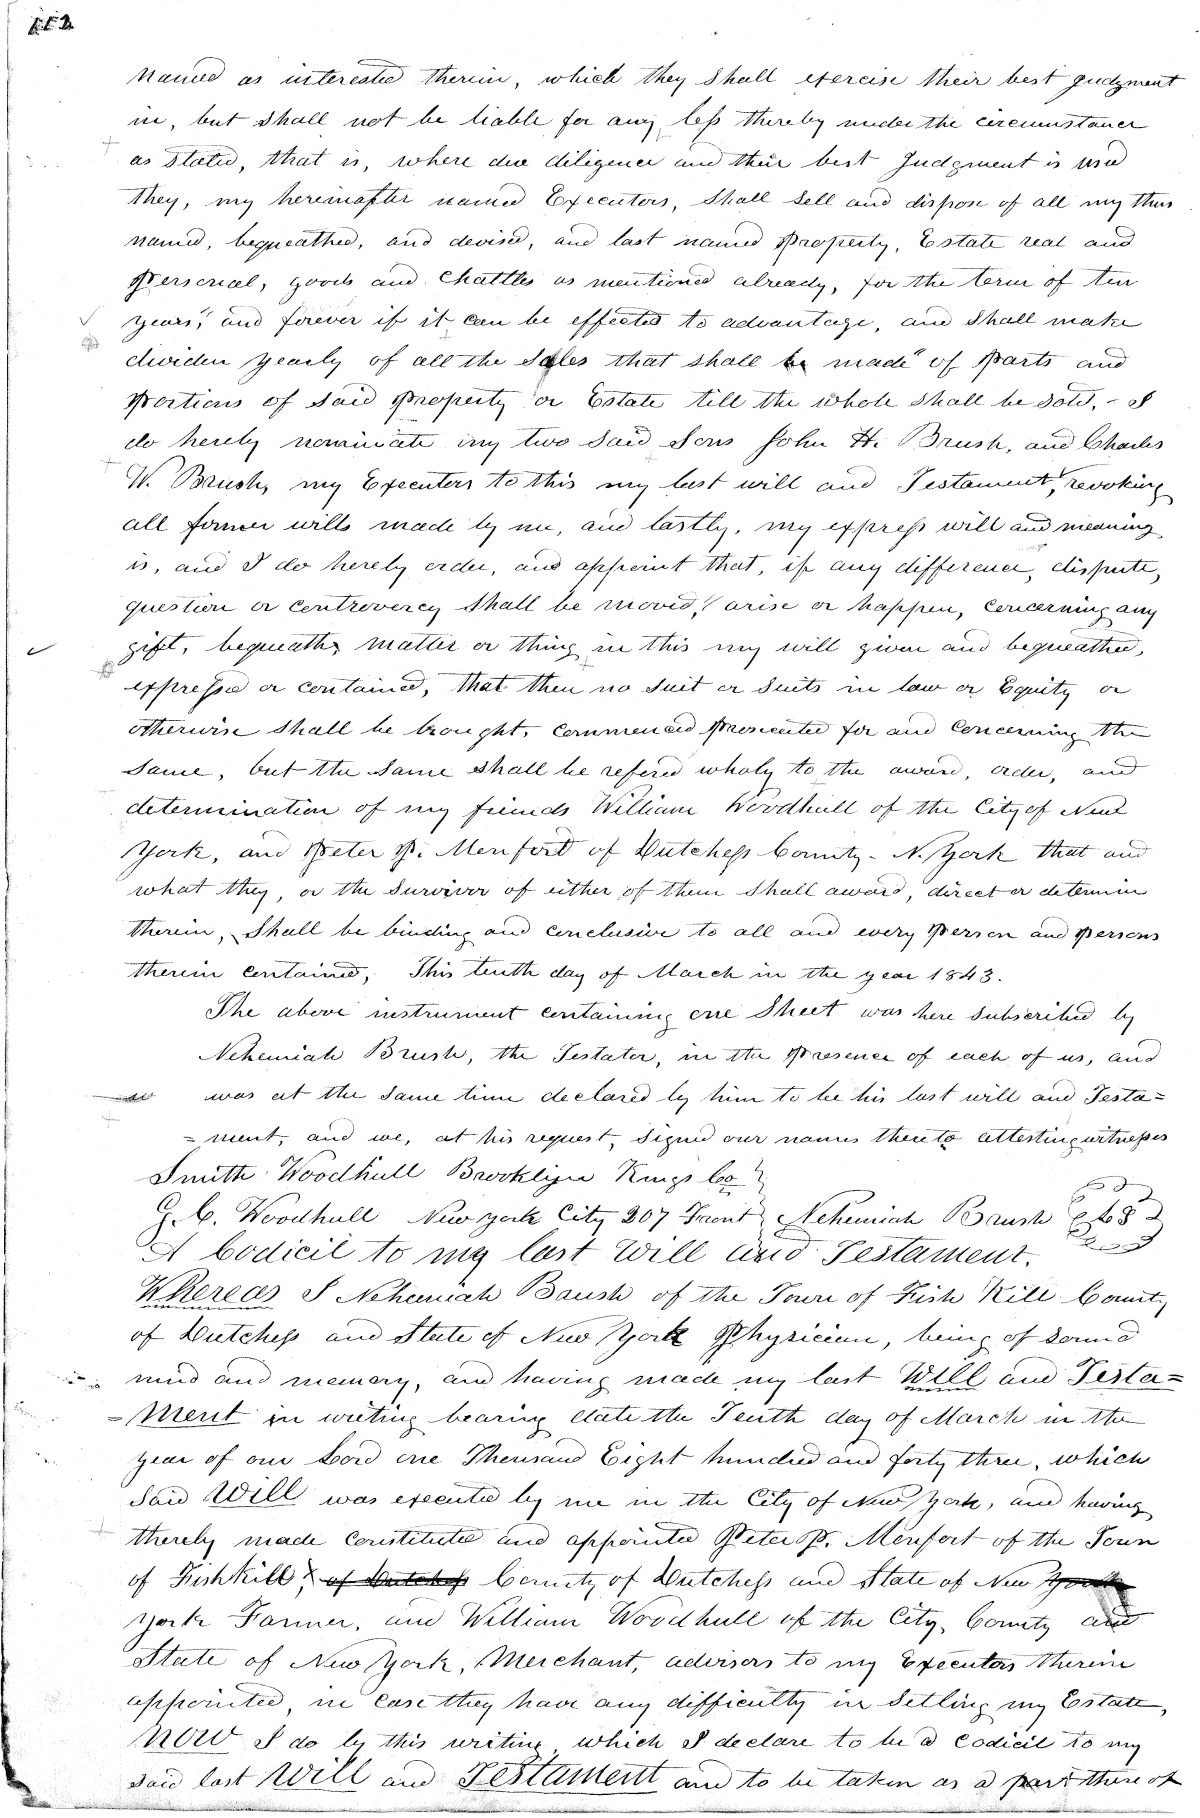 named as interested therein, which they shall exercise their best judgment
in, but shall not be liable for any loss thereby under the circumstance
as stated, that is, where due diligence and their best Judgment is used
they, my hereinafter named Executors, shall sell and dispose of all my thus
named, bequeathed, and devised, and last named Property, Estate real and
Personal, goods and Chattles as mentioned already, for the term of ten
years, and forever if it can be effected to advantage, and shall make
dividen yearly of all the Sales that shall be made of Parts and
Portions of said Property or Estate till the whole shall be sold, - I
do hereby nominate my two said Sons John H. Brush, and Charles
W. Brush, my Executors to this my last will and Testament, revoking
all former wills made by me, and lastly, my express will and meaning
is, and I do hereby order, and appoint that, if any difference, dispute,
question or controvercy shall be moved, arise or happen, concerning any
gift, bequeath, matter or thing in this my will given and bequeathed,
expressed or contained, that then no suit or suits in law or Equity or
otherwise shall be brought, commenced prosecuted for and concerning the
same, but the same shall be refered wholy to the award, order, and
determination of my friends William Woodhull of the City of New
York, and Peter P. Monfort of Dutchess County - N. York that and
what they, or the survivor of either of them shall award, direct or determin
therein, shall be binding and conclusive to all and every Person and Persons
therein contained, This tenth day of March in the year 1843.
The above instrument containing one Sheet was here subscribed by
Nehemiah Brush, the Testator, in the Presence of each of us, and
was at the same time declared by him to be his last will and Testa=
=ment, and we, at his request, signed our names thereto attesting witnesses
Smith Woodhull Brooklyn Kings Co
G. C. Woodhull New york City 207 Front Nehemiah Brush L S
A Codicil to my last Will and Testament.
Whereas I Nehemiah Brush of the Town of Fish Kill County
of Dutchess and State of New York Physician, being of sound
mind and memory, and having made my last Will and Testa=
=ment in writing bearing date the Tenth day of March in the
year of our Lord one Thousand Eight hundred and forty three, which
said Will was executed by me in the City of New York, and having
thereby made constituted and appointed Peter P. Monfort of the Town
of Fishkill, of Dutchess County of Dutchess and State of New York
York Farmer, and William Woodhull of the City, County and
State of New York, Merchant, advisors to my Executors therein
appointed, in case they have any difficulty in Setling my Estate,
Now I do by this writing which I declare to be a codicil to my
said last Will and Testament and to be taken as a part there of